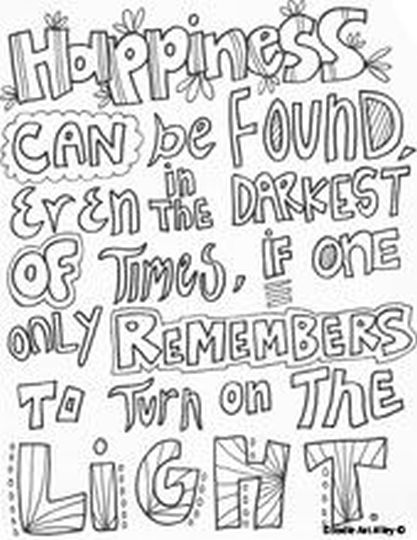 HappinesS
CAN be FOUND,
Even in THE DARKEST
OF Times, iF ONE
ONLY REMEMBERS
TO Turn on THE
LiGHT
Doodle Art Alley ©